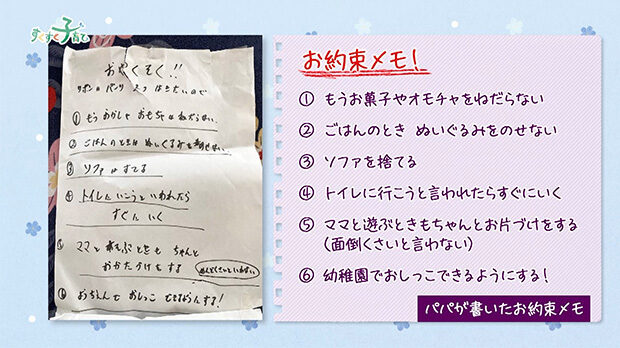 すくすく子育て
おやくそく!!
リボンの パンツ 2つ はきたいので
① もう おかしや おもちゃは ねだらない。
② ごはんのときは ぬいぐるみを のせない。
③ ソファは すてる
④ トイレに いこうと いわれたら
すぐに いく
⑤ ママと あそぶときも ちゃんと
おかたづけをする
めんどくさいと いわない
⑥ おしっこ できるようにする!
お約束メモ!
① もうお菓子やオモチャをねだらない
② ごはんのとき ぬいぐるみをのせない
③ ソファを捨てる
④ トイレに行こうと言われたらすぐにいく
⑤ ママと遊ぶときもちゃんとお片づけをする
(面倒くさいと言わない)
⑥ 幼稚園でおしっこできるようにする!
パパが書いたお約束メモ